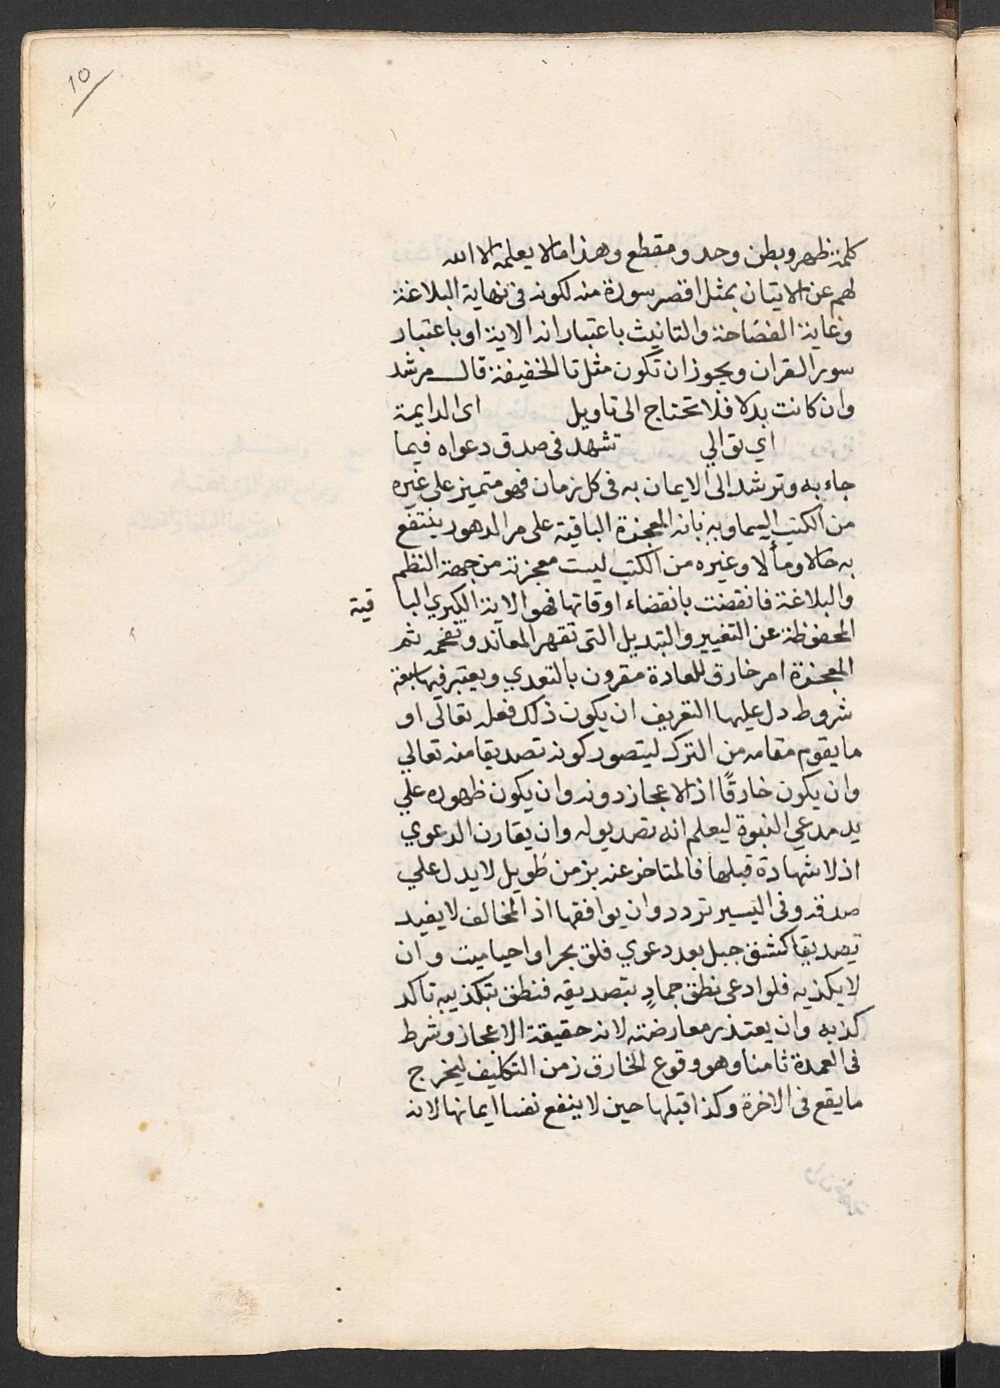 10
كلمة ظهر وبطن وحد ومقطع وهذا مما لا يعلمه الا الله
لهم عن الاتيان بمثل اقصر سورة منه لكونه في نهاية البلاغة
وغاية الفصاحة والتانيث باعتبار انه الاية او باعتبار
سور القران ويجوز ان تكون مثل تا الخفيفة قال مرشد
وان كانت بدلا فلا تحتاج الى تاويل اى الدايمة
اي توالي تشهد في صدق دعواه فيما
جاء به وترشد الى الايمان به فى كل زمان فهو متميز على غيره
من الكتب السماويه بانه المعجزة الباقية على مر الدهور ينتفع
به حالا ومألا وغيره من الكتب ليست معجزته من جهة النظم
والبلاغة فانقضت بانقضاء اوقاتها فهو الاية الكبري البا قية
المحفوظة عن التغيير والتبديل التى تقهر المعاند وتفحمه ثم
المعجزة امر خارق للعادة مقرون بالتحدي ويعتبر فيها سبعة
شروط دل عليها التعريف ان يكون ذلك فعله تعالى او
ما يقوم مقامه من الترك ليتصور كونه تصديقا منه تعالي
وان يكون خارقًا اذ لا اعجاز دونه وان يكون ظهوره علي
يد مدعي النبوة ليعلم انه تصديق له وان يقارن الدعوي
اذ لا شهادة قبلها فالمتاخر عنه بزمن طويل لا يدل علي
صدقه وفى اليسير تردد وان يوافقها اذ المخالف لا يفيد
تصديقا كشق جبل بعد دعوي فلق بحر او احيا ميت وان
لا يكذبه فلو ادعى نطق جمادٍ بتصديقه فنطق بتكذيبه تاكد
كذبه وان يعتذر معارضته لانه حقيقة الاعجاز وشرط
فى العمدة ثامنا وهو وقوع الخارق زمن التكليف ليخرج
ما يقع فى الاخرة وكذا قبلها حين لا ينفع نفسا ايمانها لانه